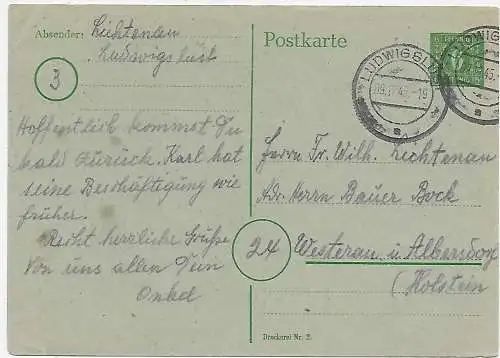 Absender: Lichtenau
Ludwigslust
3
Hoffentlich kommst Du
bald zurück. Karl hat
seine Beschäftigung wie
früher.
Recht herzliche Grüße
von uns allen Dein
Onkel
Postkarte
LUDWIGSLUST
a
LUDWIGSL
Herrn Fr. Wilh. Lichtenau
Adr. Herrn Bauer Bock
24 Westerau ü. Albersdorf
(Holstein
Druckerei Nr. 2.